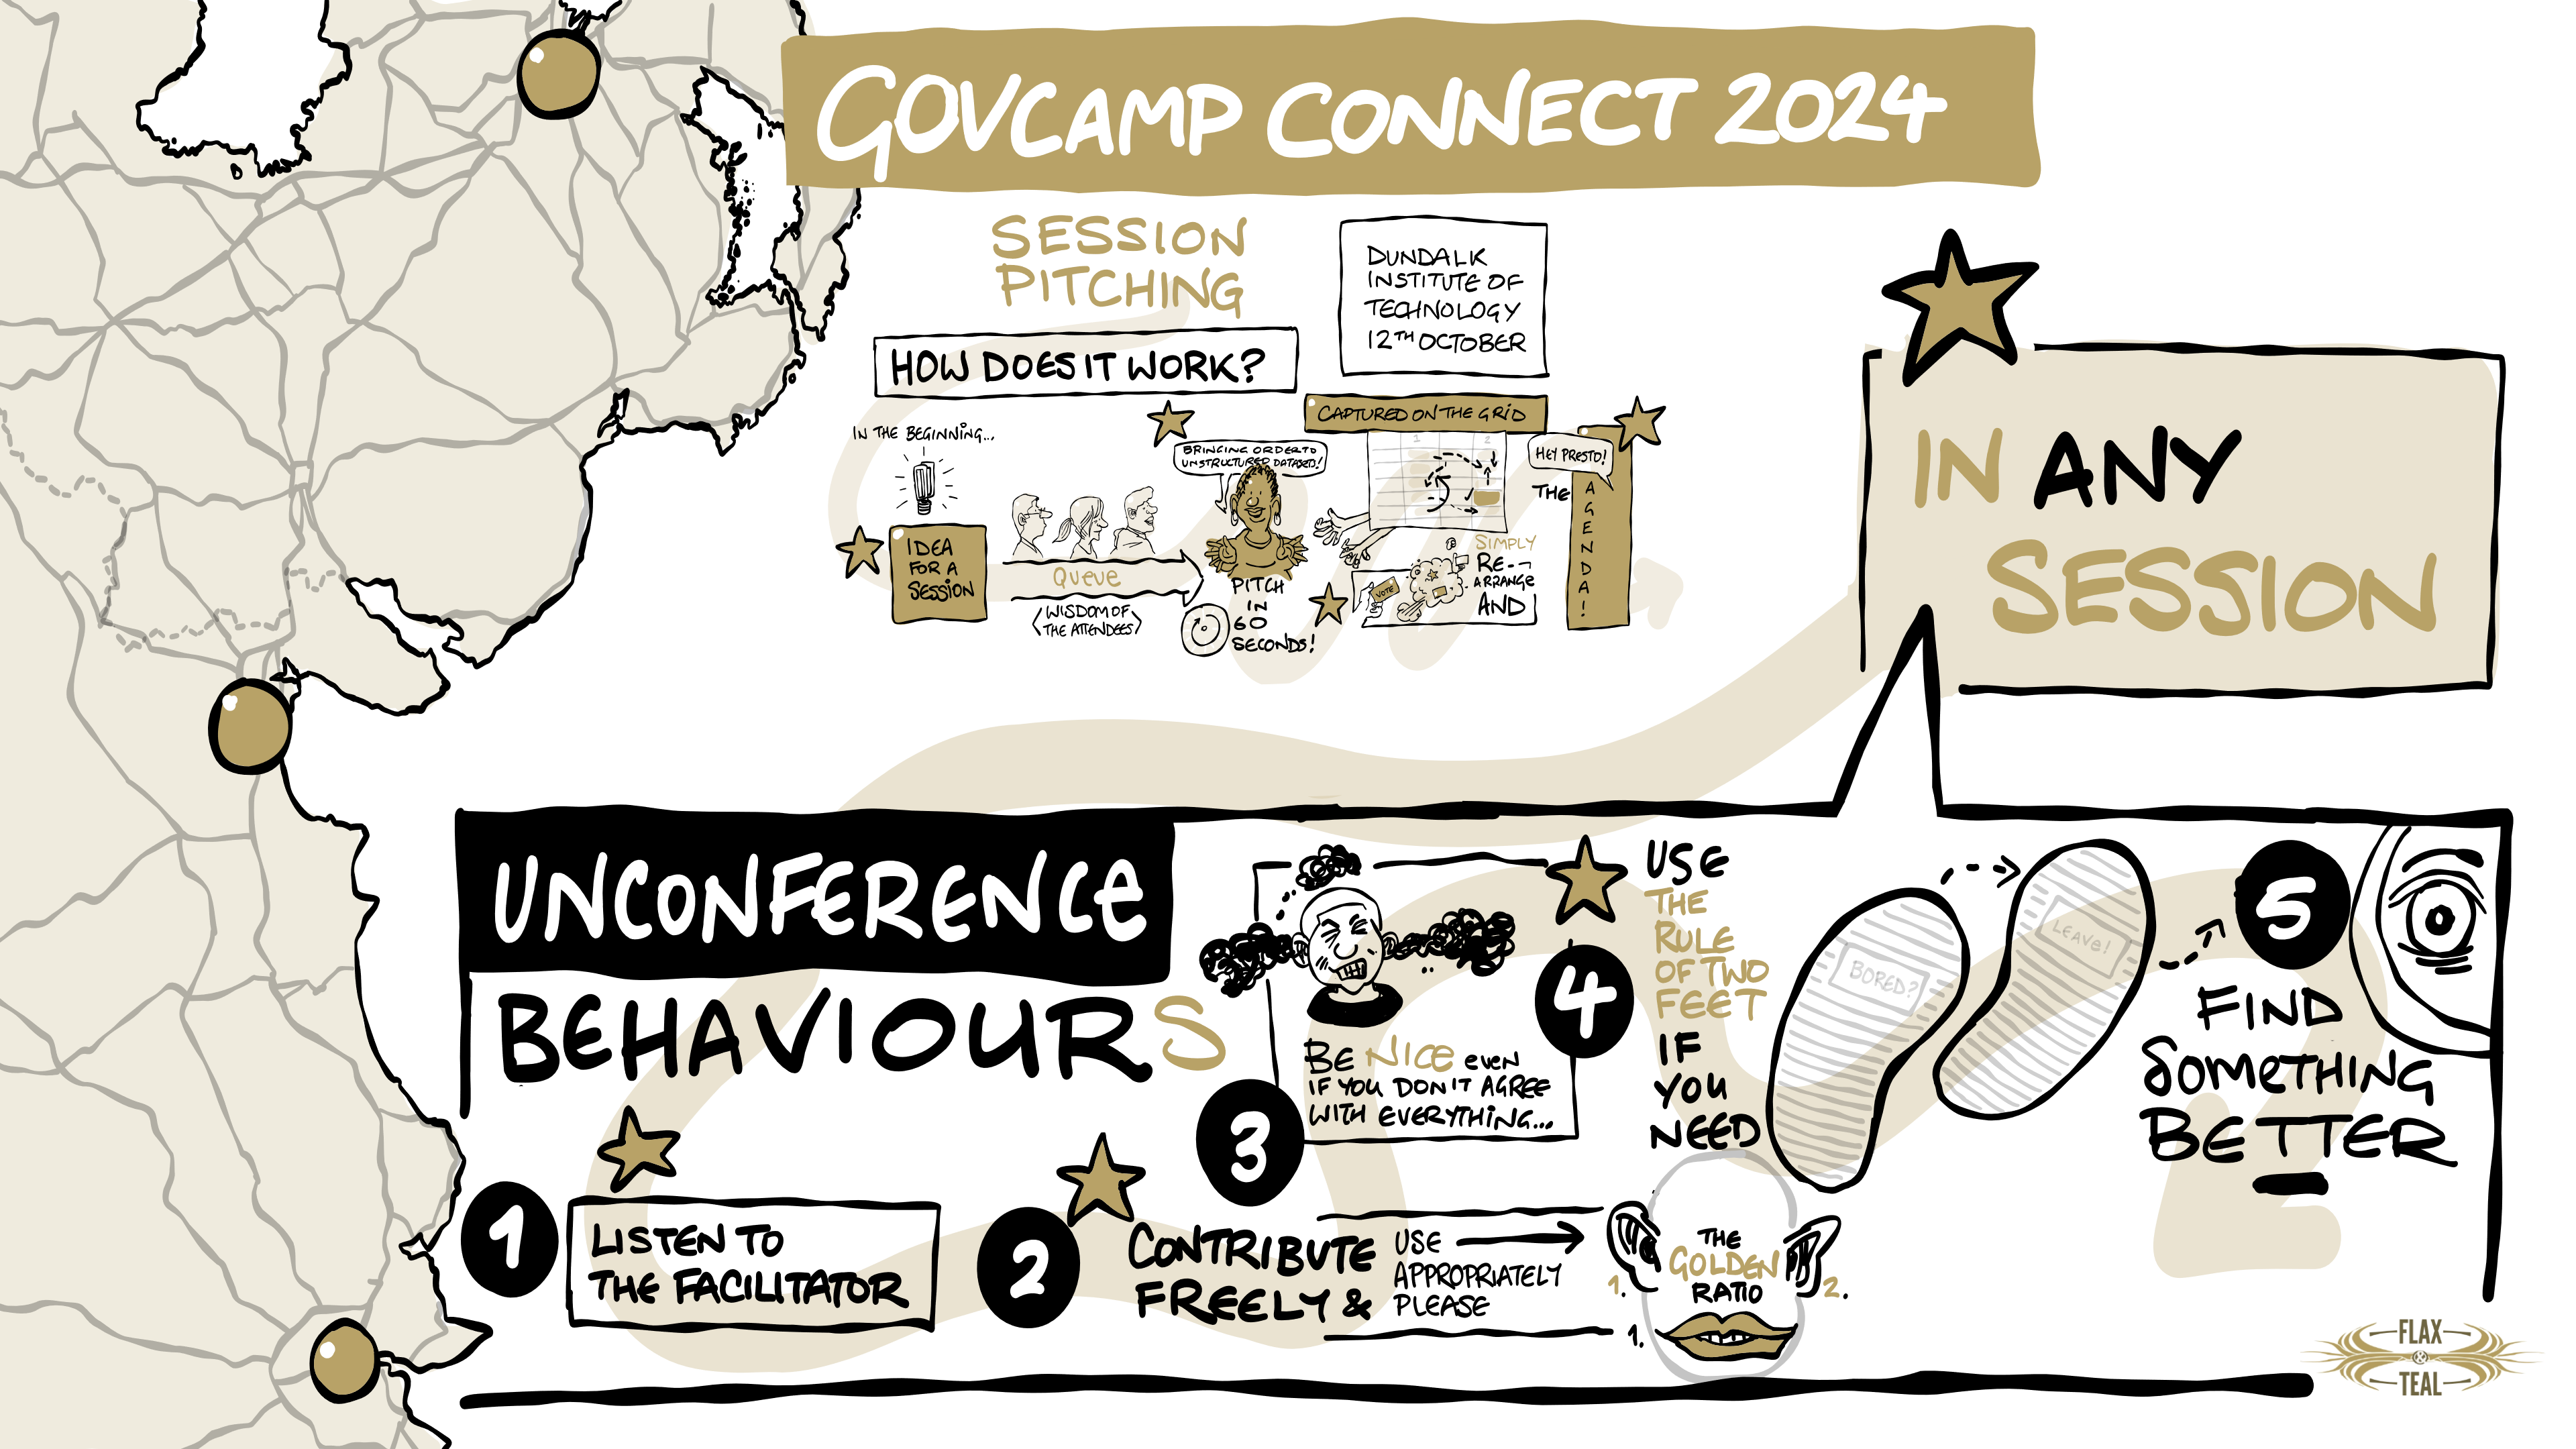 GOVCAMP CONNECT 2024
SESSION
PITCHING
DUNDALK
INSTITUTE OF
TECHNOLOGY
12TH OCTOBER
HOW DOES IT WORK?
IN THE BEGINNING...
IDEA
FOR A
SESSION
QUEUE
WISDOM OF
THE ATTENDEES
BRINGING ORDER TO
UNSTRUCTURED DATASETS!
PITCH
IN
60
SECONDS!
CAPTURED ON THE GRID
1 2
VOTE
SIMPLY
RE-
ARRANGE
AND
HEY PRESTO!
THE
AGENDA!
IN ANY
SESSION
UNCONFERENCE
BEHAVIOURS
1
LISTEN TO
THE FACILITATOR
2
CONTRIBUTE
FREELY &
USE
APPROPRIATELY
PLEASE
THE
GOLDEN
RATIO
1.
2.
1.
3
BE NICE even
IF YOU DON'T AGREE
WITH EVERYTHING...
4
USE
THE
RULE
OF TWO
FEET
IF
YOU
NEED
BORED?
LEAVE!
5
FIND
SOMETHING
BETTER
FLAX
&
TEAL